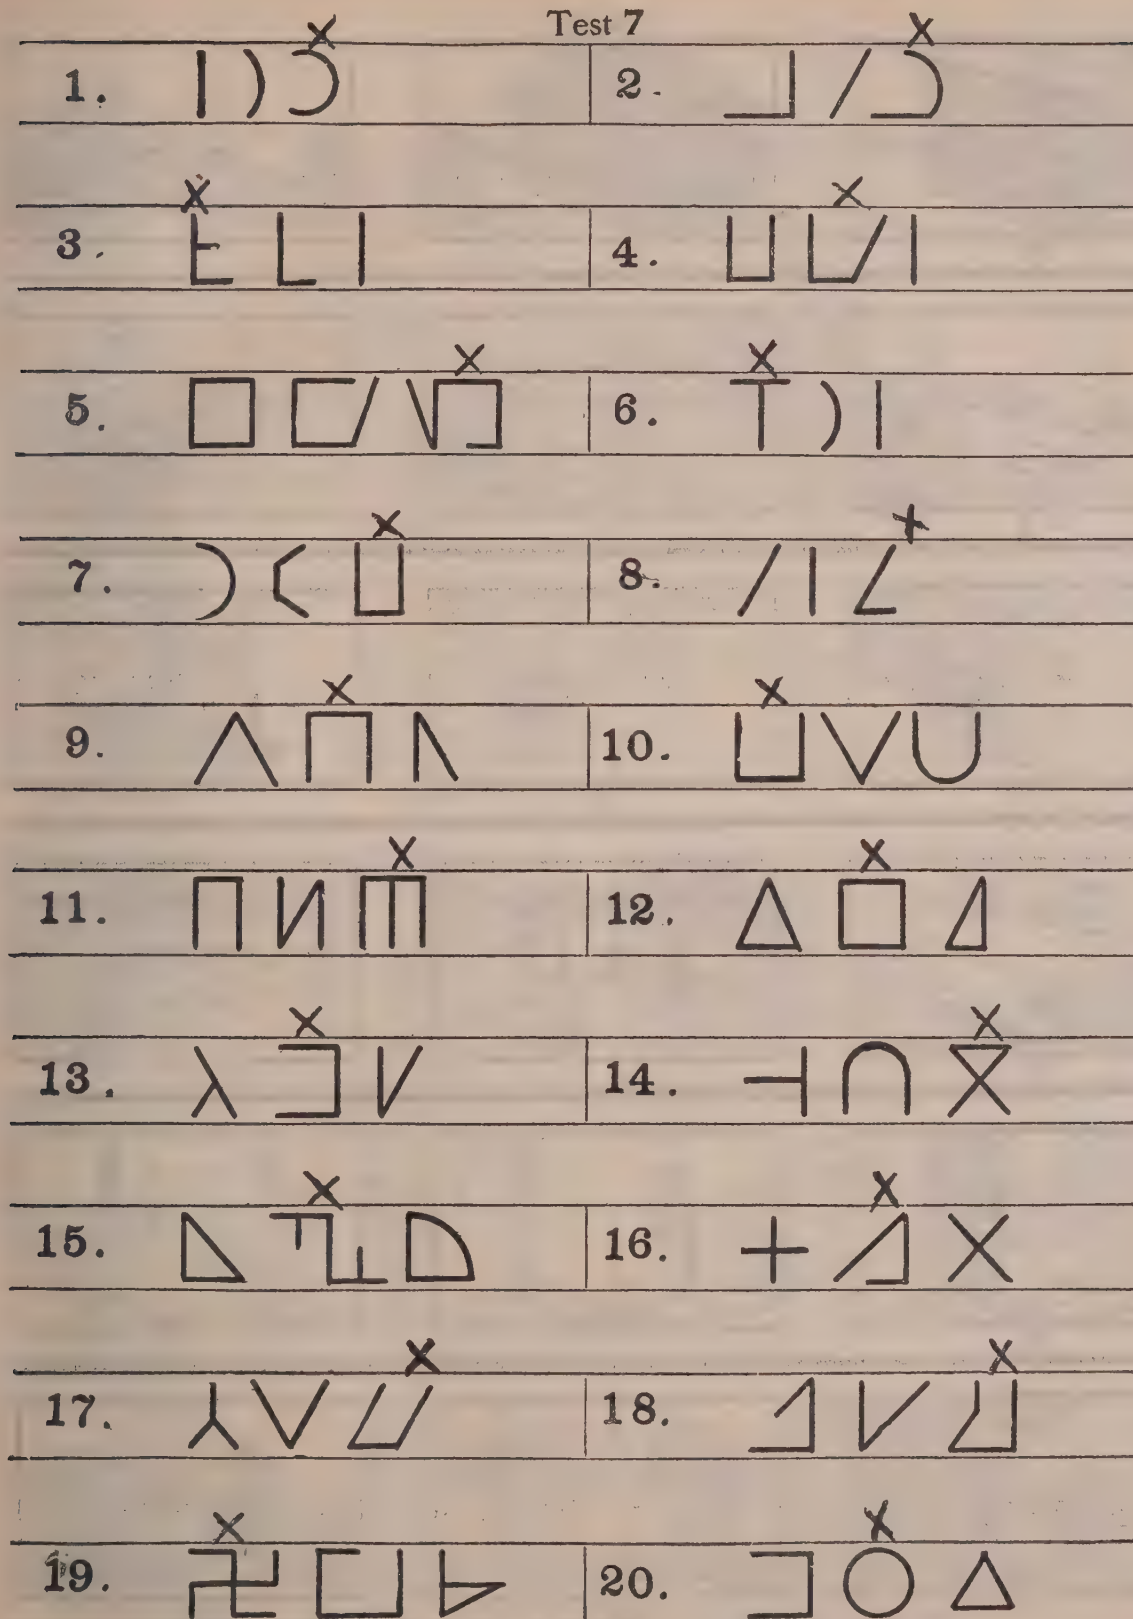 Test 7
1. 2.
3. 4.
5. 6.
7. 8.
9. 10.
11. 12.
13. 14.
15. 16.
17. 18.
19. 20.